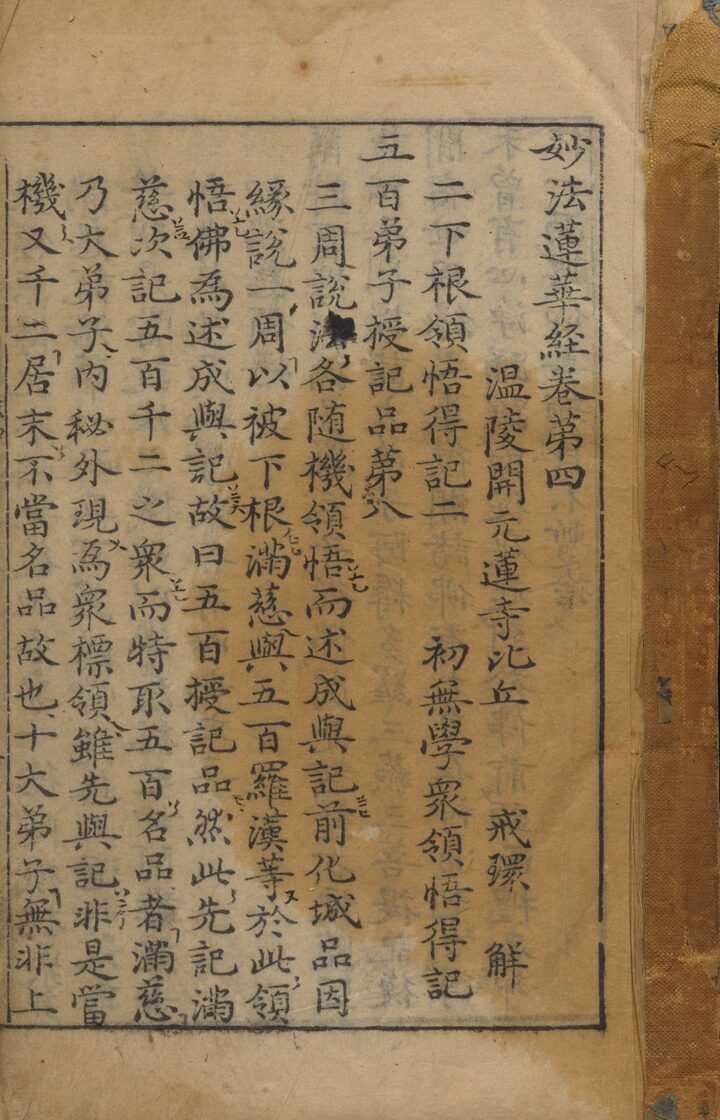 妙法蓮華経卷第四
温陵開元蓮寺比丘 戒環 解
二下根領悟得記二 初無學衆領悟得記
五百弟子授記品第八
三周說法各随機領悟而述成與記前化城品因
緣說一周以被下根滿慈與五百羅漢等於此領
悟佛為述成與記故曰五百授記品然此先記滿
慈次記五百千二之衆而特取五百名品者滿慈
乃大弟子內秘外現為衆標領雖先與記非是當
機又千二居末不當名品故也十大弟子無非上